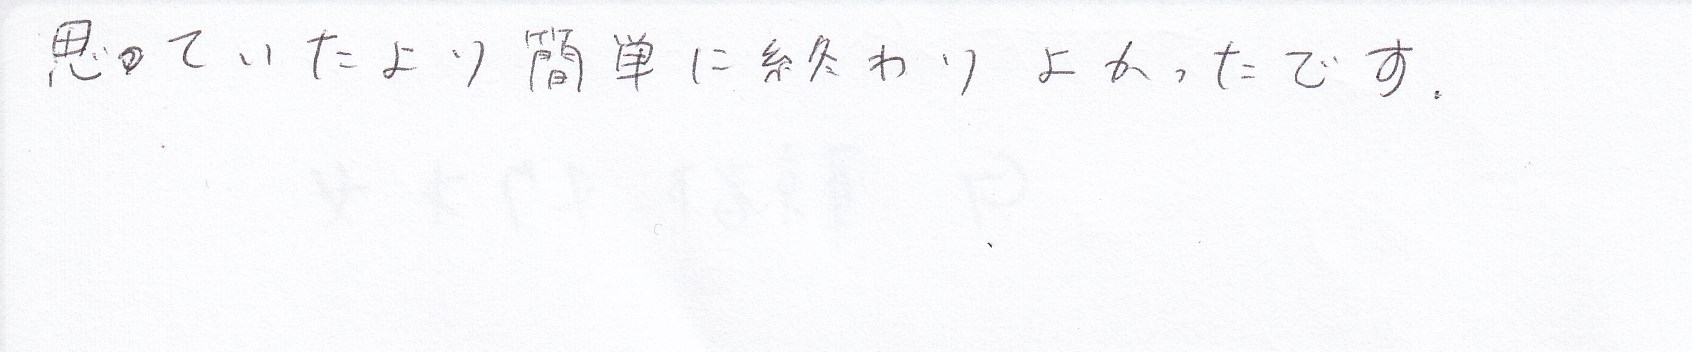 思っていたより簡単に終わりよかったです.